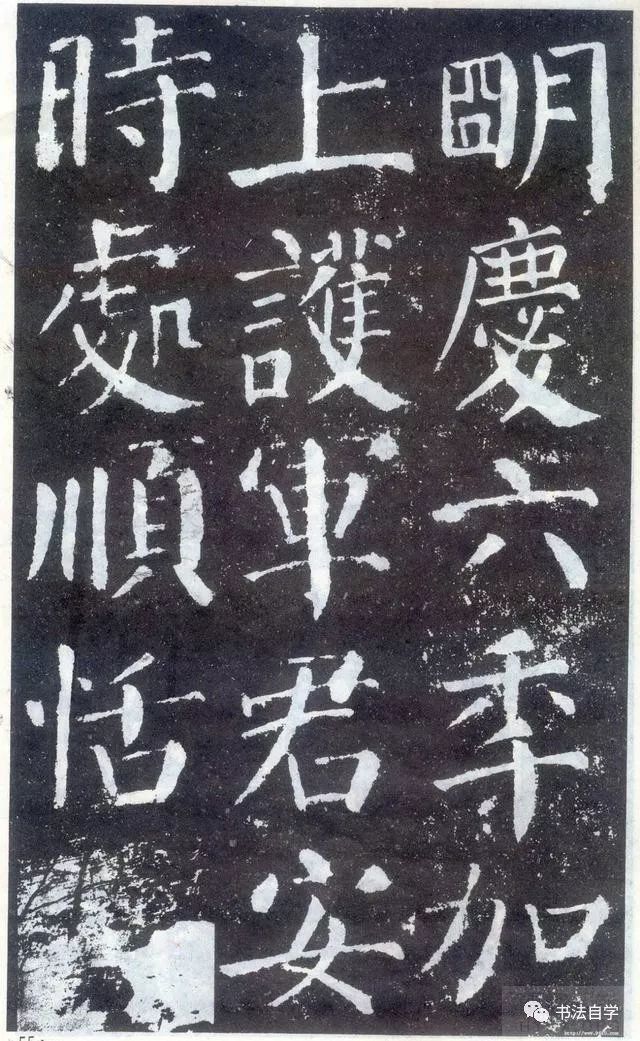 朙慶六秊加
上護軍君安
時處順恬
书法自学
55